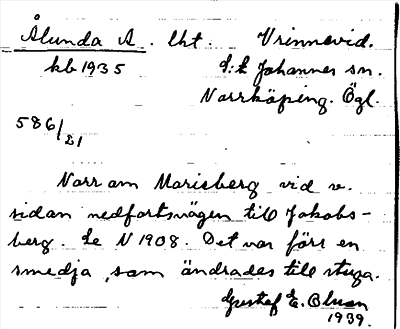 Ålunda A. lht. Vrinnevid.
kb 1935 S:t Johannes sn.
Norrköping. Ögl.
586/81
Norr om Marieberg vid v.
sidan nedfartsvägen till Jakobs-
berg. Se N 1908. Det var förr en
smedja, som ändrades till stuga.
Gustaf E. Olson
1939.